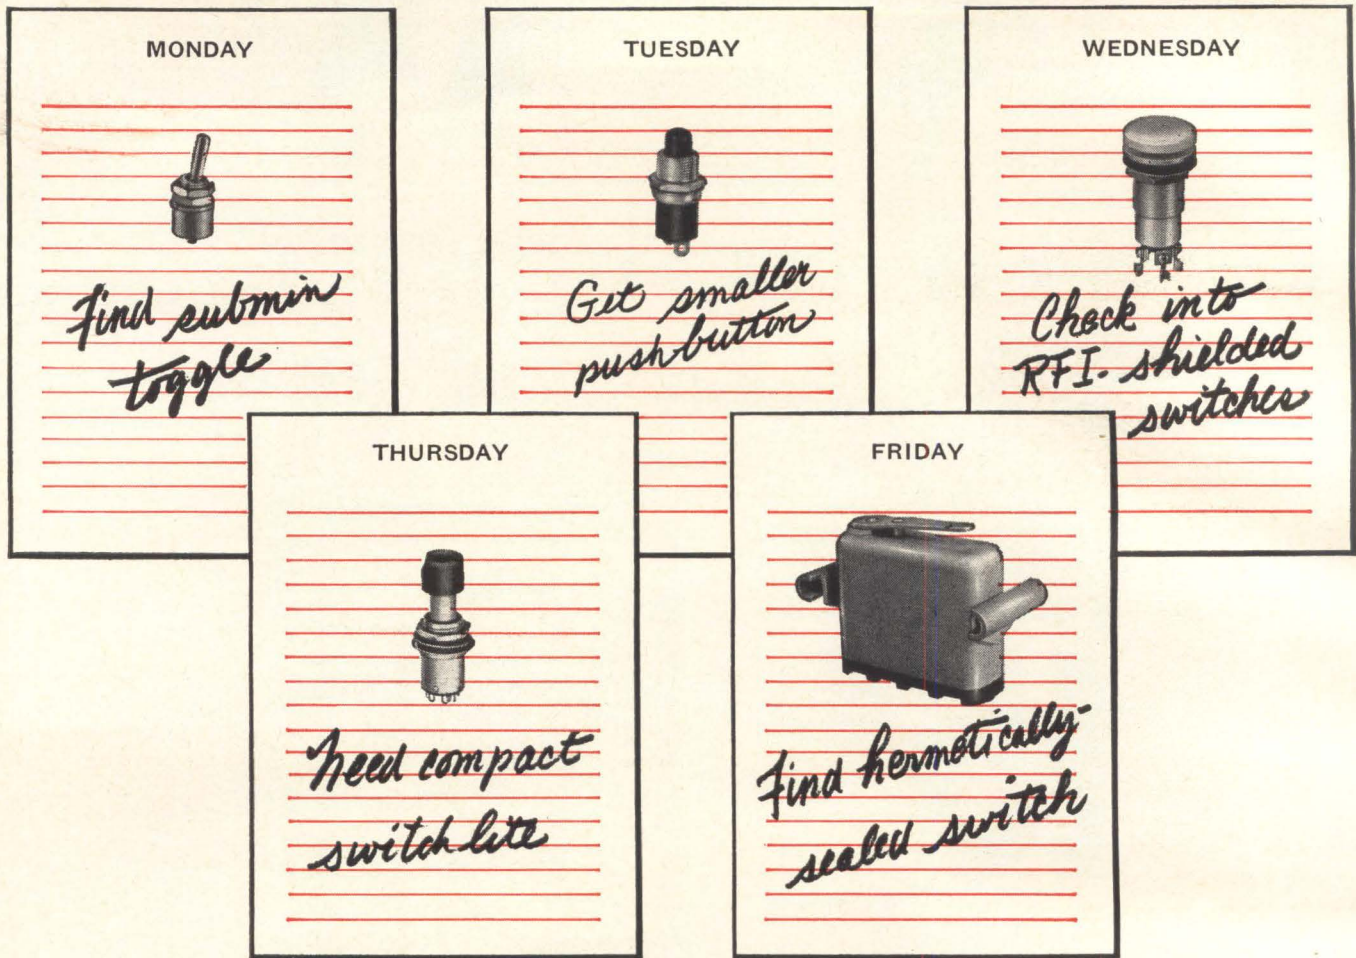 MONDAY
Find submin
toggle
TUESDAY
Get smaller
pushbutton
WEDNESDAY
Check into
RFI-shielded
switches
THURSDAY
Need compact
switchlite
FRIDAY
Find hermetically-
sealed switch